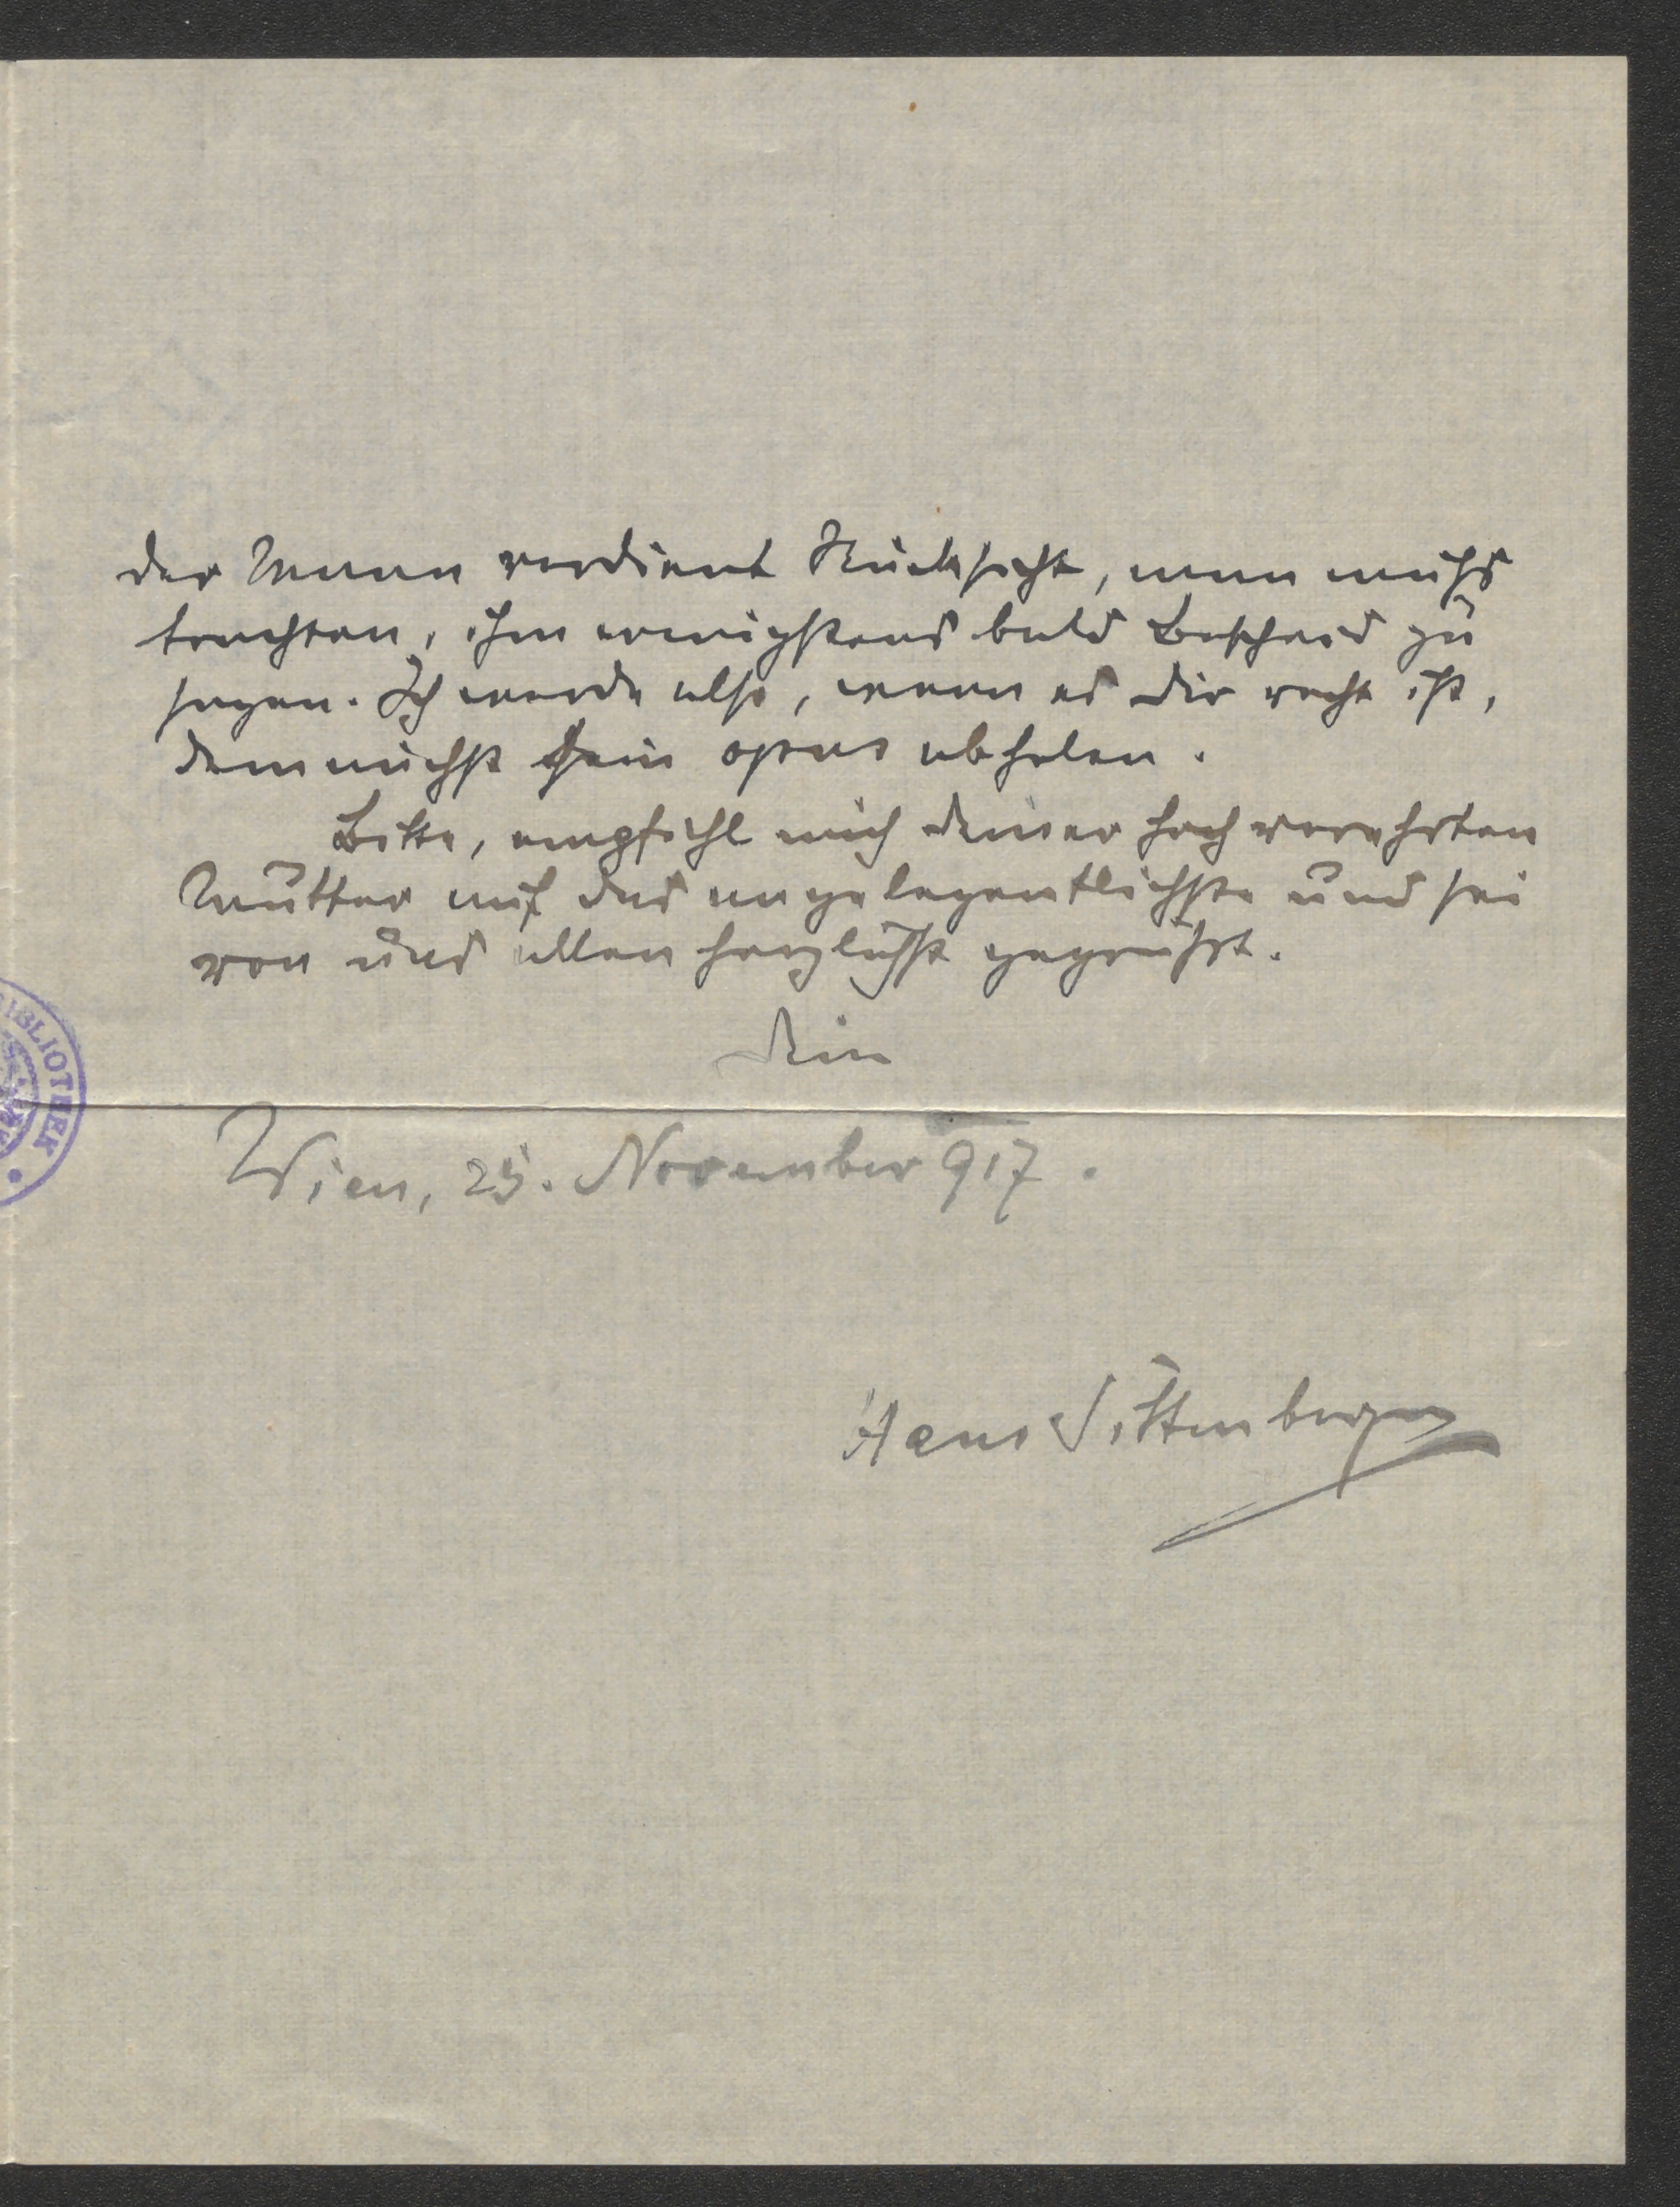 der Mann verdient Rücksicht, man muſs
trachten, ihm wenigstens bald Bescheid zu
sagen. Ich werde also, wenn es dir recht ist,
demnächst sein opus abholen.
Bitte, empfiehl mich deiner hochverehrten
Mutter auf das angelegentlichste und sei
von uns allen herzlichst gegrüßt.
Dein
Wien, 25. November 917.
Hans Sittenberger
BIBLIOTHEK